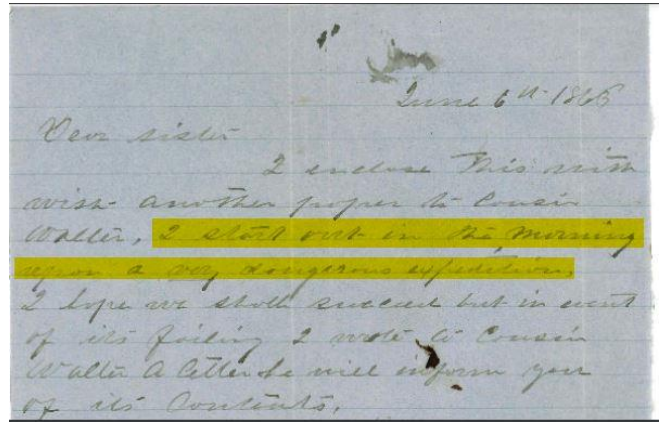 June 6th 1866
Dear sister
I enclose this with
wish another paper to Cousin
Walter, I start out in the morning
upon a very dangerous expedition,
I hope we shall succeed but in event
of its failing I wrote to Cousin
Walter A letter he will inform you
of its Contents.